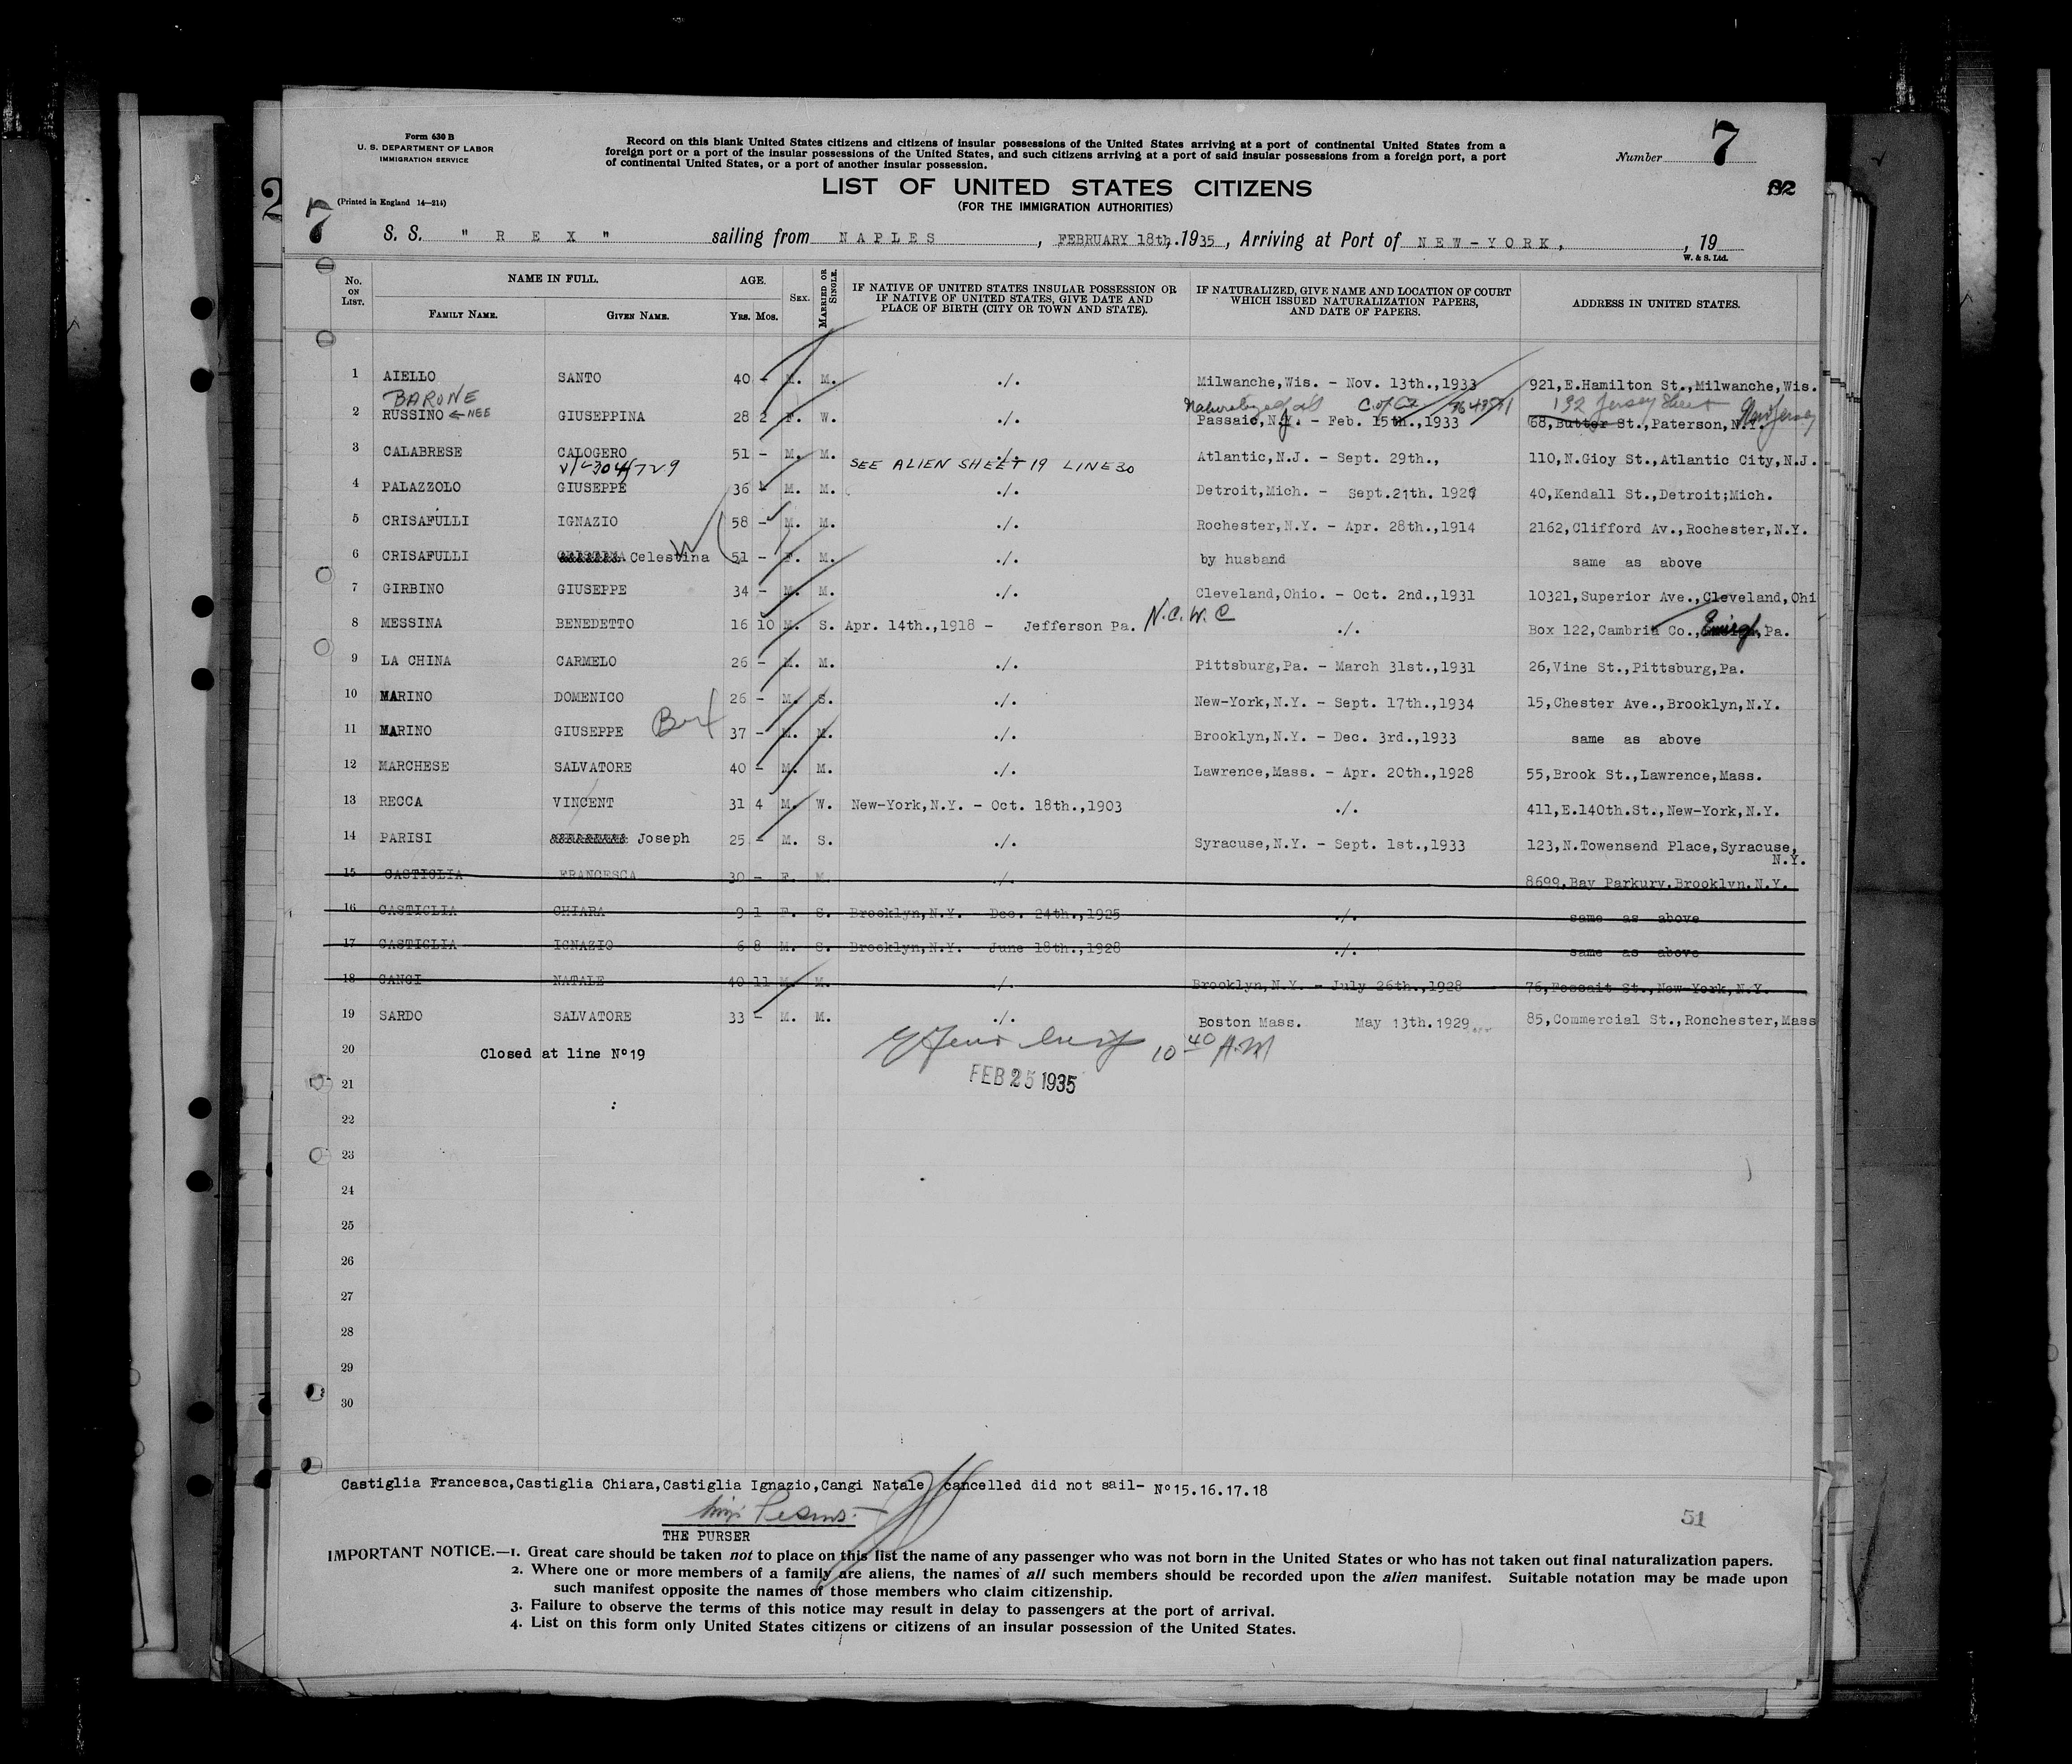 Form 630 B
U. S. DEPARTMENT OF LABOR
IMMIGRATION SERVICE
(Printed in England 14—214)
Record on this blank United States citizens and citizens of insular possessions of the United States arriving at a port of continental United States from a
foreign port or a port of the insular possessions of the United States, and such citizens arriving at a port of said insular possessions from a foreign port, a port
of continental United States, or a port of another insular possession.
Number 7
LIST OF UNITED STATES CITIZENS
(FOR THE IMMIGRATION AUTHORITIES)
2
7
S. S. " R E X " sailing from N A P L E S , FEBRUARY 18th, 1935, Arriving at Port of N E W - Y O R K, , 19
W. & S. Ltd.
No. ON LIST. NAME IN FULL. AGE. SEX. MARRIED OR SINGLE. IF NATIVE OF UNITED STATES INSULAR POSSESSION OR IF NATIVE OF UNITED STATES, GIVE DATE AND PLACE OF BIRTH (CITY OR TOWN AND STATE). IF NATURALIZED, GIVE NAME AND LOCATION OF COURT WHICH ISSUED NATURALIZATION PAPERS, AND DATE OF PAPERS. ADDRESS IN UNITED STATES.
FAMILY NAME. GIVEN NAME. YRS. MOS.
1 AIELLO SANTO 40 - M. M. ./. Milwanche,Wis. - Nov. 13th.,1933 921,E.Hamilton St.,Milwanche,Wis.
BARONE Naturalized as C. of Cz 132 Jersey Street New Jersey
2 RUSSINO ← NEE GIUSEPPINA 28 2 F. W. ./. Passaic,N.J. - Feb. 15th.,1933 68,Butter St.,Paterson,N.Y.
3 CALABRESE CALOGERO 51 - M. M. ./. Atlantic,N.J. - Sept. 29th., 110,N.Gioy St.,Atlantic City,N.J.
SEE ALIEN SHEET 19 LINE 30
4 PALAZZOLO GIUSEPPE 36 - M. M. ./. Detroit,Mich. - Sept.21th. 1929 40,Kendall St.,Detroit;Mich.
5 CRISAFULLI IGNAZIO 58 - M. M. ./. Rochester,N.Y. - Apr. 28th.,1914 2162,Clifford Av.,Rochester,N.Y.
6 CRISAFULLI Celestina 51 - F. M. ./. by husband same as above
7 GIRBINO GIUSEPPE 34 - M. M. ./. Cleveland,Ohio. - Oct. 2nd.,1931 10321,Superior Ave.,Cleveland,Ohi
8 MESSINA BENEDETTO 16 10 M. S. Apr. 14th.,1918 - Jefferson Pa. N.C.W.C ./. Box 122,Cambria Co.,Emigh,Pa.
9 LA CHINA CARMELO 26 - M. M. ./. Pittsburg,Pa. - March 31st.,1931 26,Vine St.,Pittsburg,Pa.
10 MARINO DOMENICO 26 - M. S. ./. New-York,N.Y. - Sept. 17th.,1934 15,Chester Ave.,Brooklyn,N.Y.
11 MARINO GIUSEPPE 37 - M. M. ./. Brooklyn,N.Y. - Dec. 3rd.,1933 same as above
12 MARCHESE SALVATORE 40 - M. M. ./. Lawrence,Mass. - Apr. 20th.,1928 55,Brook St.,Lawrence,Mass.
13 RECCA VINCENT 31 4 M. W. New-York,N.Y. - Oct. 18th.,1903 ./. 411,E.140th.St.,New-York,N.Y.
14 PARISI Joseph 25 - M. S. ./. Syracuse,N.Y. - Sept. 1st.,1933 123,N.Towensend Place,Syracuse,
N.Y.
15 CASTIGLIA FRANCESCA 30 - F. M. ./. 8699,Bay Parkury,Brooklyn.N.Y.
16 CASTIGLIA CHIARA 9 1 F. S. Brooklyn,N.Y. - Dec. 24th.,1925 ./. same as above
17 CASTIGLIA IGNAZIO 6 8 M. S. Brooklyn,N.Y. - June 18th.,1928 ./. same as above
18 CANGI NATALE 40 11 M. M. ./. Brooklyn,N.Y. - July 26th.,1928 76,Fossait St.,New-York,N.Y.
19 SARDO SALVATORE 33 - M. M. ./. Boston Mass. May 13th.1929 85,Commercial St.,Ronchester,Mass
20 Closed at line Nº19 10 40 A.M
21 FEB 25 1935
22
23
24
25
26
27
28
29
30
Castiglia Francesca,Castiglia Chiara,Castiglia Ignazio,Cangi Natale cancelled did not sail- Nº15.16.17.18
THE PURSER
51
IMPORTANT NOTICE.—1. Great care should be taken not to place on this list the name of any passenger who was not born in the United States or who has not taken out final naturalization papers.
2. Where one or more members of a family are aliens, the names of all such members should be recorded upon the alien manifest. Suitable notation may be made upon
such manifest opposite the names of those members who claim citizenship.
3. Failure to observe the terms of this notice may result in delay to passengers at the port of arrival.
4. List on this form only United States citizens or citizens of an insular possession of the United States.